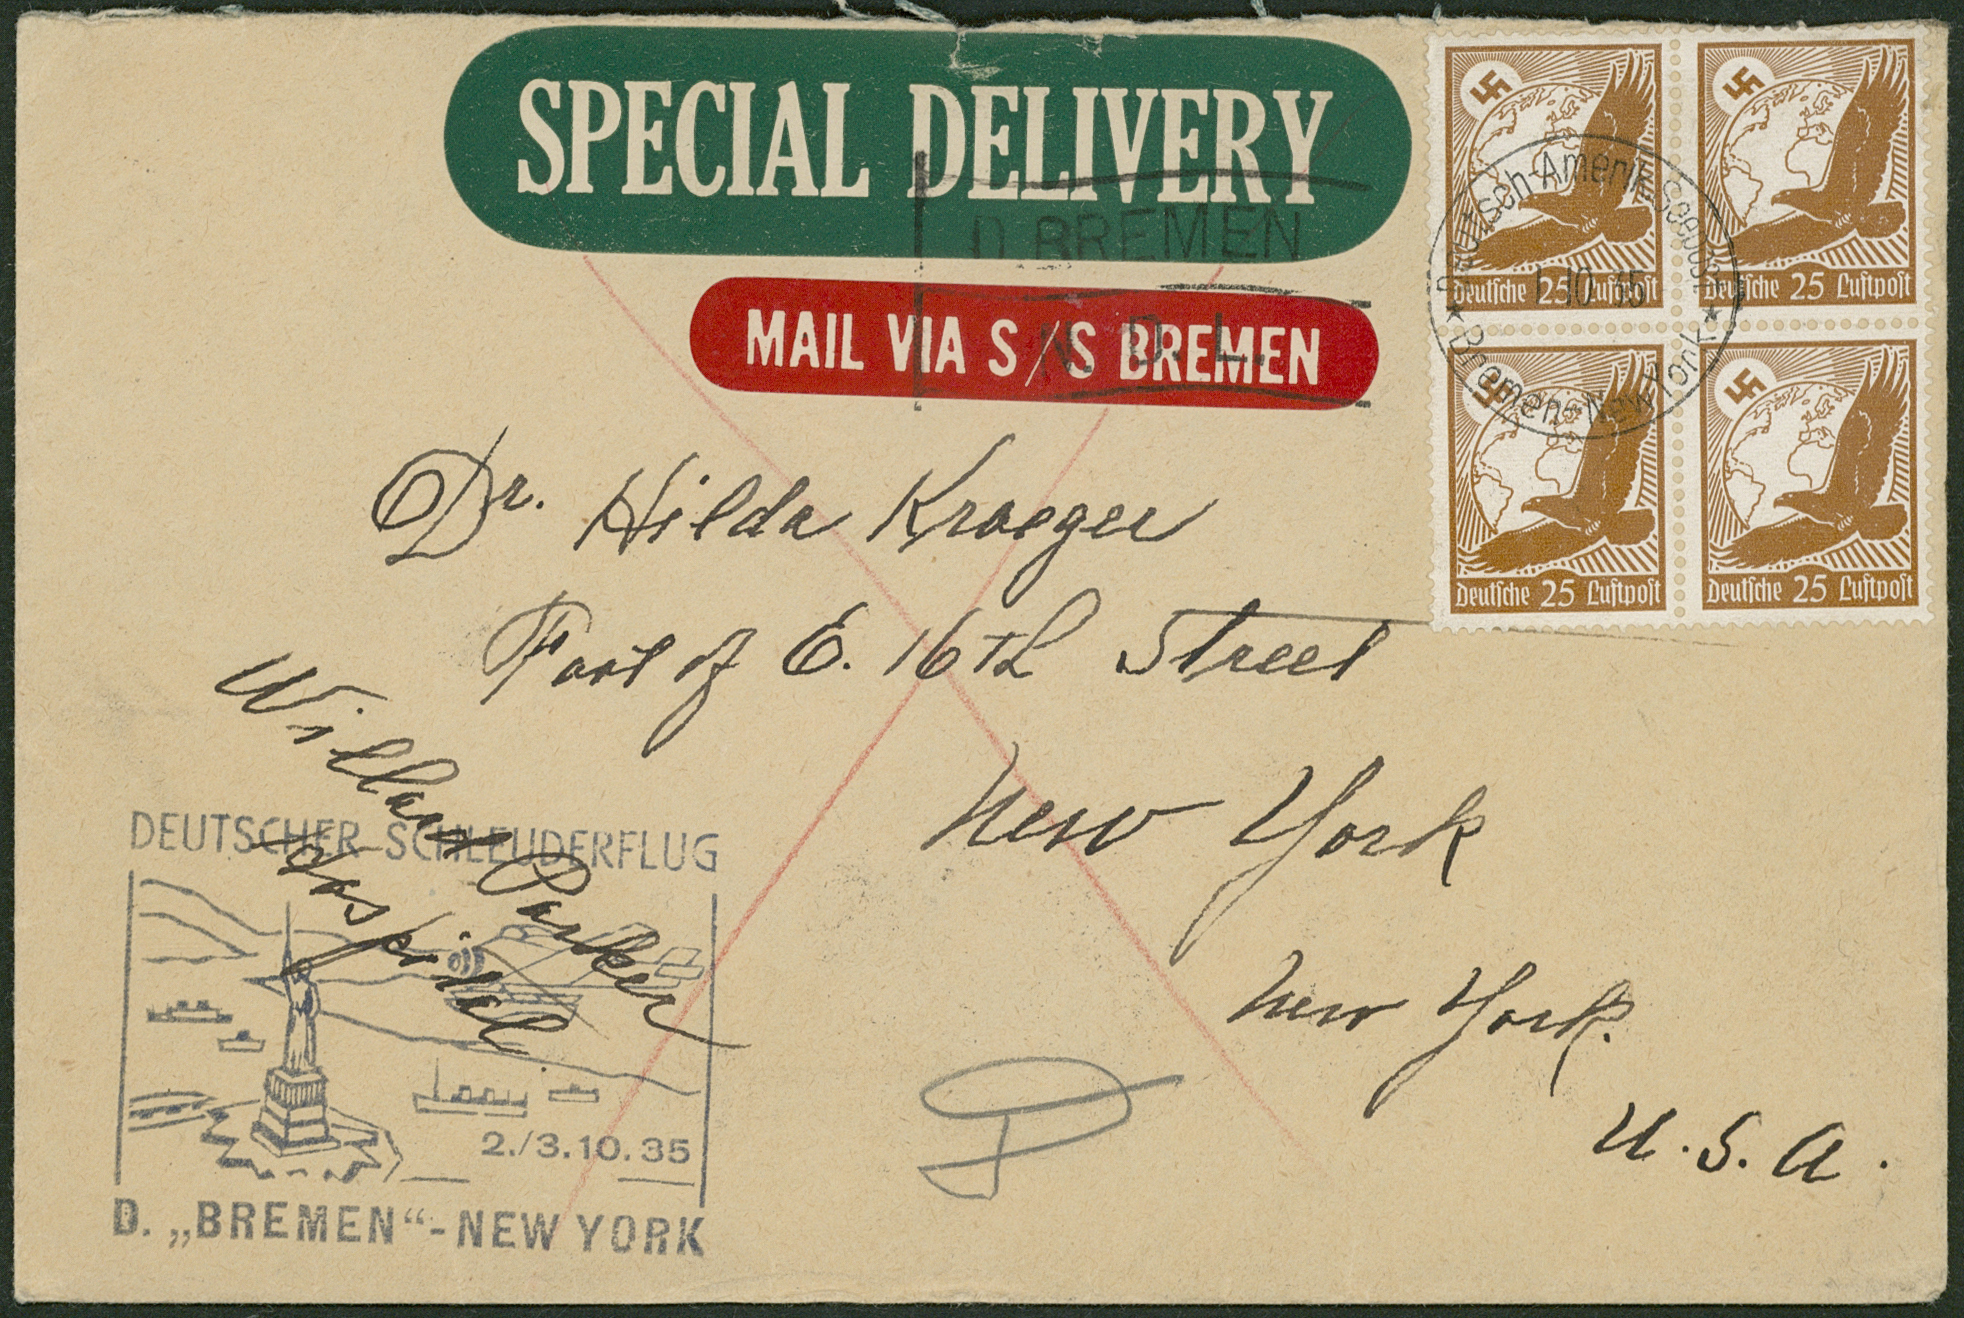 SPECIAL DELIVERY
D. BREMEN
MAIL VIA S/S BREMEN
N. D. L.
Deutsche 25 Luftpost
Deutsche 25 Luftpost
Deutsche 25 Luftpost
Deutsche 25 Luftpost
Deutsch-Amerik. Seepost
1.10.35
Bremen-New York
Dr. Hilda Kroeger
Foot of E. 16th Street
New York
New York.
U.S.A.
Willard Parker
Hospital
DEUTSCHER-SCHLEUDERFLUG
2./3.10.35
D. „BREMEN“-NEW YORK